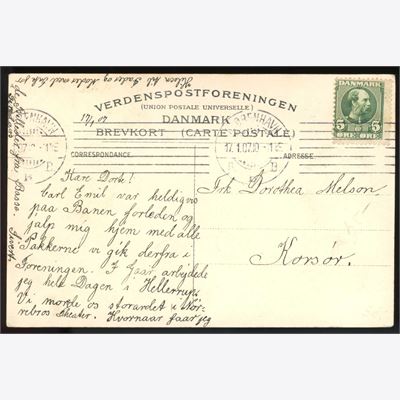 VERDENSPOSTFORENINGEN
(UNION POSTALE UNIVERSELLE)
DANMARK
BREVKORT (CARTE POSTALE)
CORRESPONDANCE
ADRESSE
DANMARK
5 5
ØRE ØRE
KJØBENHAVN
17.1.07.
B
17/1 07
Kære Dorte!
Carl Emil var heldigvis
paa Banen forleden og
hjalp mig hjem med alle
Pakkerne vi gik derfra i
Foreningen. I Gaar arbejdede
jeg hele Dagen i Hellerup.
Vi morede os storartet i Nør-
rebros Theater. Hvornaar faar jeg
Hilsen til Fader og Moder
fra Basse.
Frk. Dorothea Melson.
Korsør.